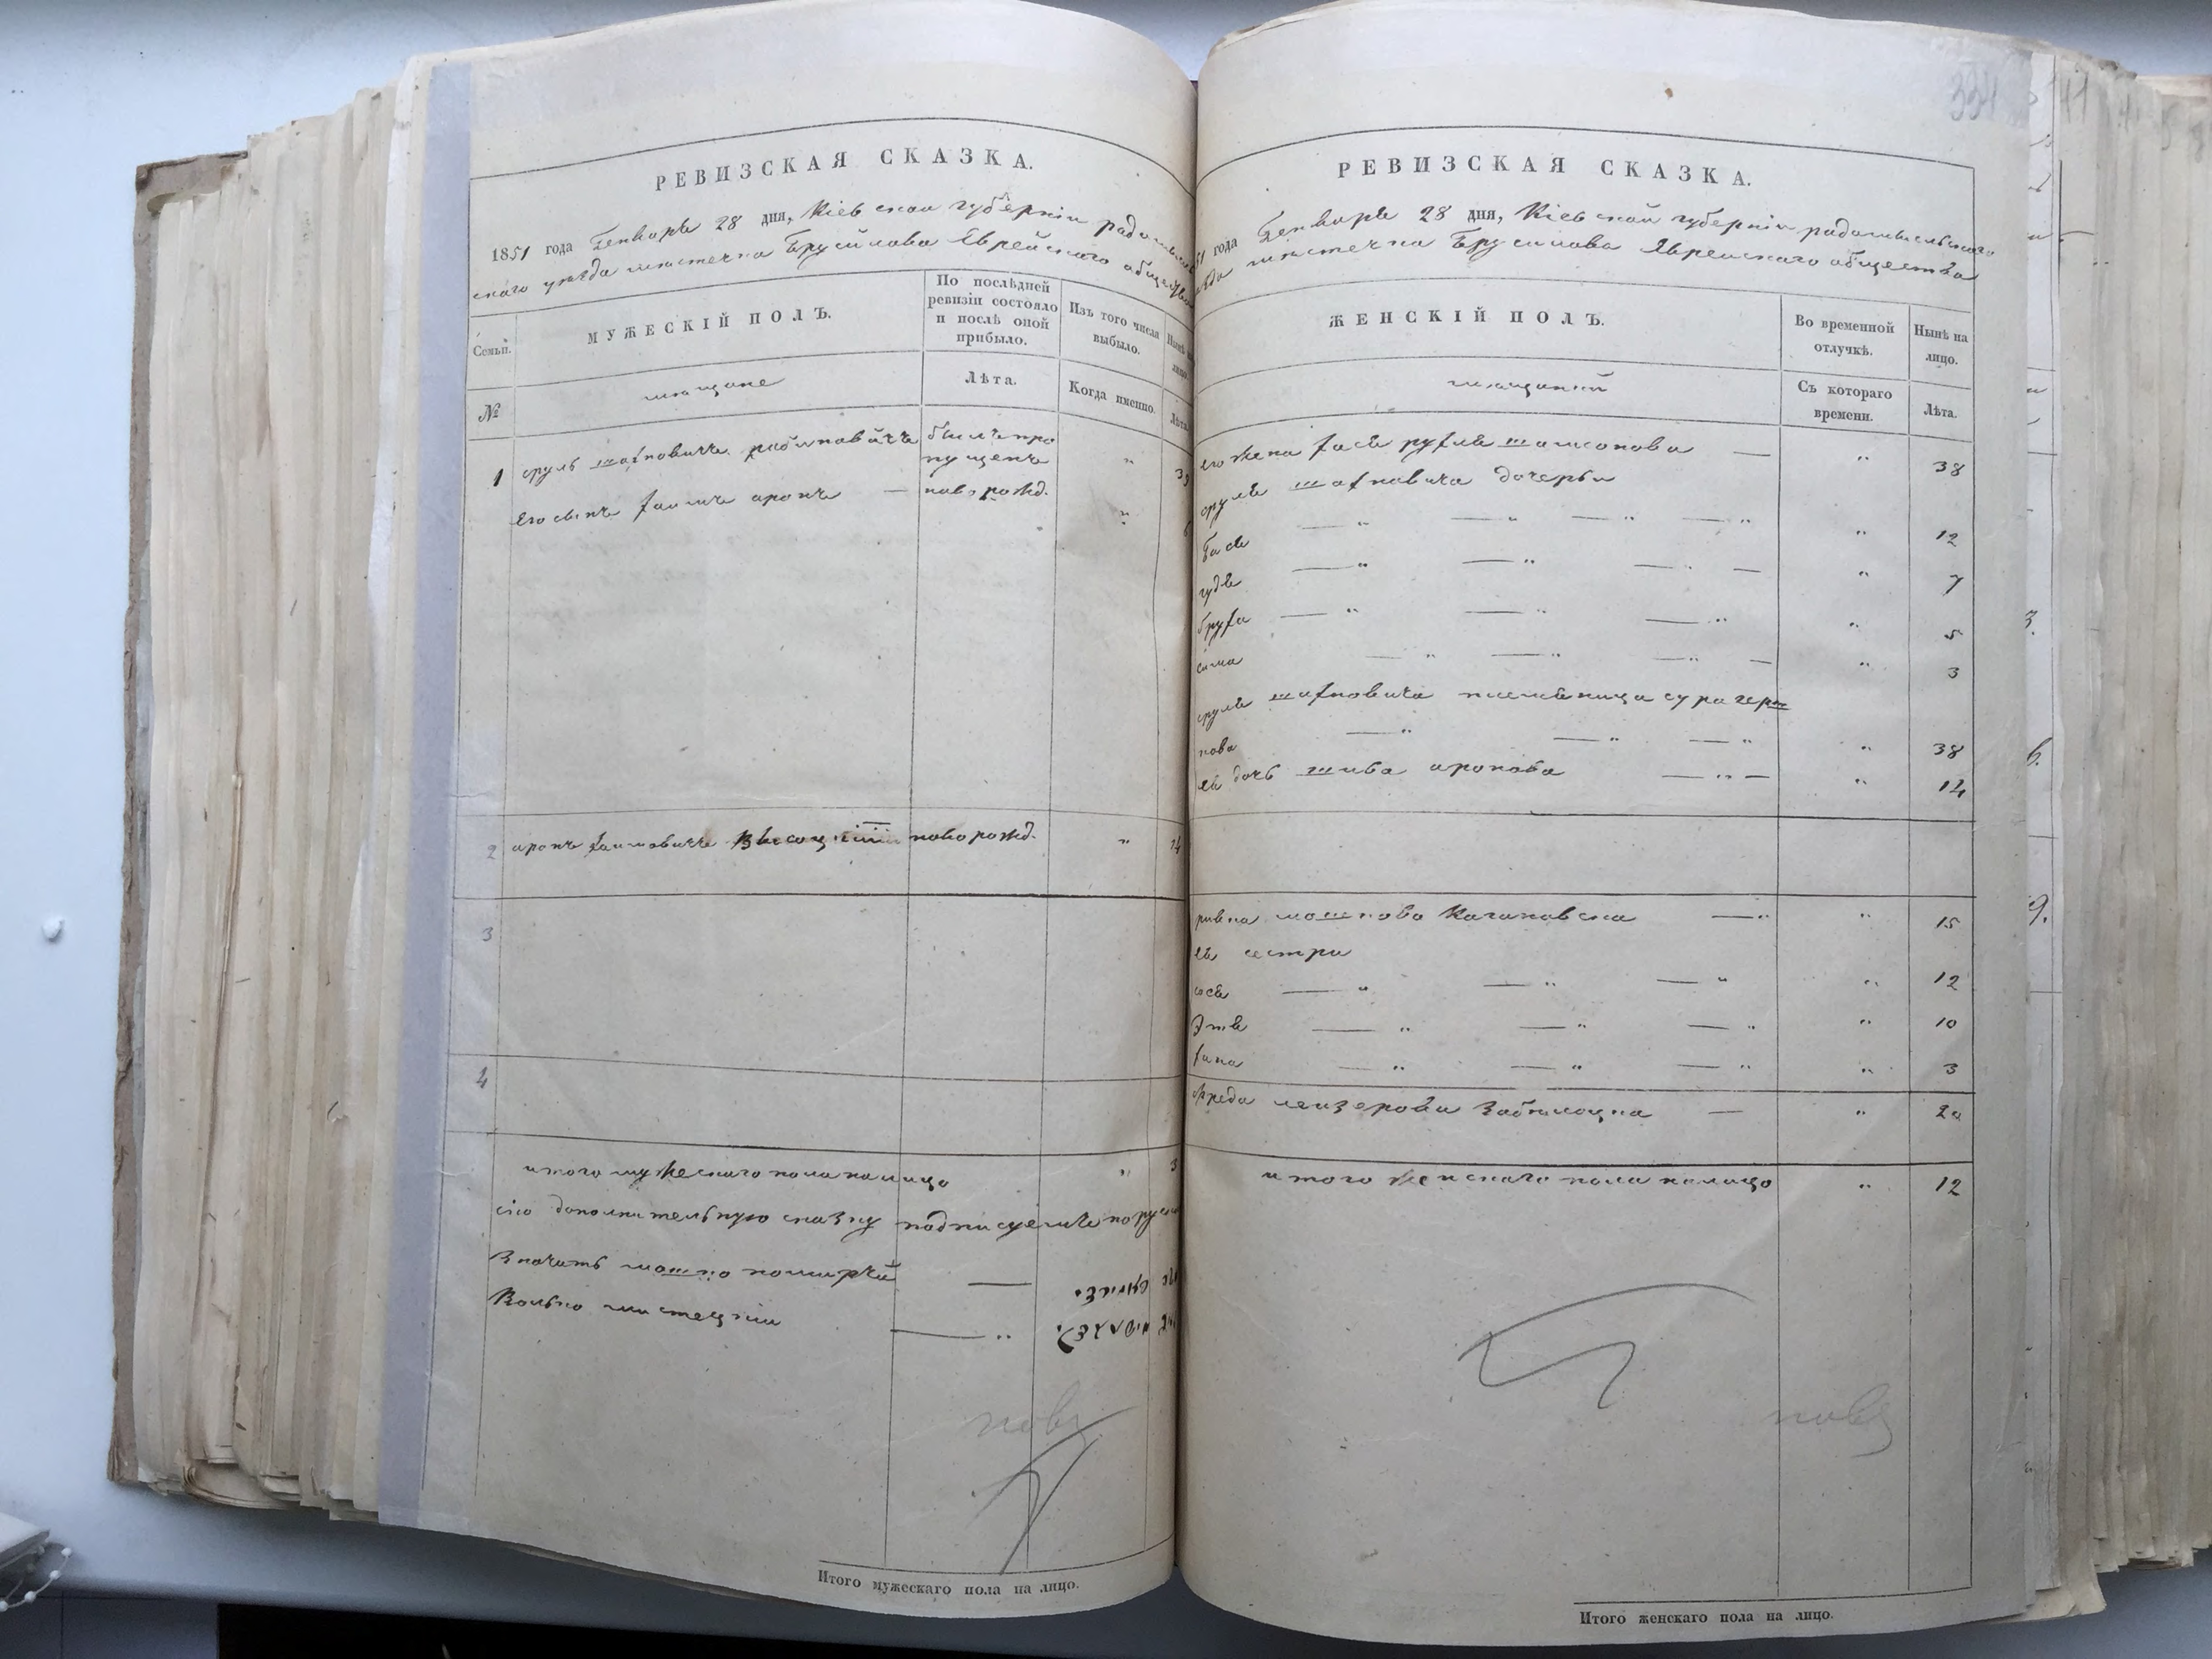 РЕВИЗСКАЯ СКАЗКА.
1851 года Генваря 28 дня, Кіевской губерніи радомысль
скаго уѣзда мѣстечка Брусилова Еврейского общества
Семьи.
МУЖЕСКІЙ ПОЛЪ.
По послѣдней ревизіи состояло и послѣ оной прибыло.
Изъ того числа выбыло.
Нынѣ на лицо.
№
мещане
Лѣта.
Когда именно.
Лѣта.
1 сруль шахновичъ рабиновичъ былъ про
пущенъ " 39
его сынъ хаимъ аронъ — новорожд. " 6
2 аронъ хаимовичъ Высоцкіий новорожд. " 14
3
4
итого мужескаго пола налицо " 3
сію дополнительную сказку подписуемъ по
Волько
Итого мужескаго пола на лицо.
334
РЕВИЗСКАЯ СКАЗКА.
51 года Генваря 28 дня, Кіевской губерніи радомысльского
уѣзда мѣстечка Брусилова Еврейского общества
ЖЕНСКІЙ ПОЛЪ.
Во временной отлучкѣ.
Нынѣ на лицо.
мещанки
Съ котораго времени.
Лѣта.
его жена хася рухля шамсонова — " 38
сруля шахновича дочерьи
бася " 12
гудя " 7
бруха " 5
сима " 3
сруля шахновича племѣница сура герш
кова " 38
еѣ дочь шива аронова " 14
ривка мошкова Кагановска " 15
еѣ сестри
сося " 12
Этя " 10
хана " 3
фреда лейзерова Заблоцка — " 20
итого женскаго пола налицо " 12
Итого женскаго пола на лицо.